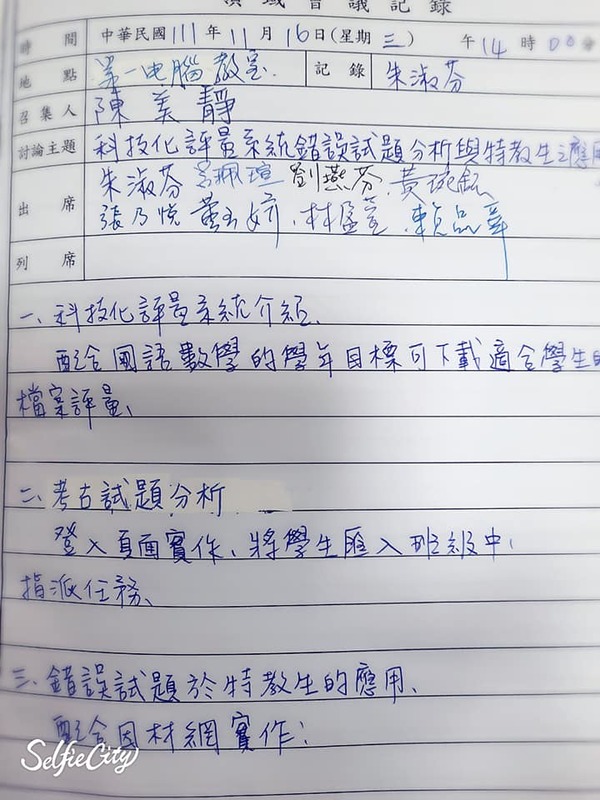 領域會議記錄
時間 中華民國111年11月16日(星期三) 午14時00分
地點 第一电腦教室 記錄 朱淑芬
召集人 陳美靜
討論主題 科技化評量系統錯誤試題分析與特教生之應用
出席 朱淑芬 劉燕芬 黃琬
張乃悅 林盈萱 賴品
列席
一、科技化評量系統介紹、
配合國語數學的學年目標可下載適合學生的
檔案評量、
二、考古試題分析
登入頁面實作、將學生匯入班級中,
指派任務、
三、錯誤試題於特教生的應用、
配合因材網實作:
SelfieCity